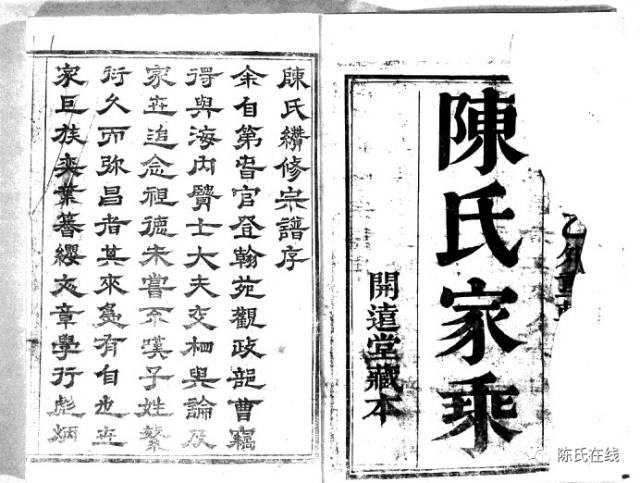 乙 重
陳氏家乘
開遠堂藏本
陳氏纘修宗譜序
余自第晉官登翰苑觀政部曹竊
得與海内賢士大夫交相與論及
家世追念祖德未嘗不嘆子姓繁
衍久而弥昌者其來蓋有自也世
家巨族奕葉簪纓文章學行彪炳
陈氏在线